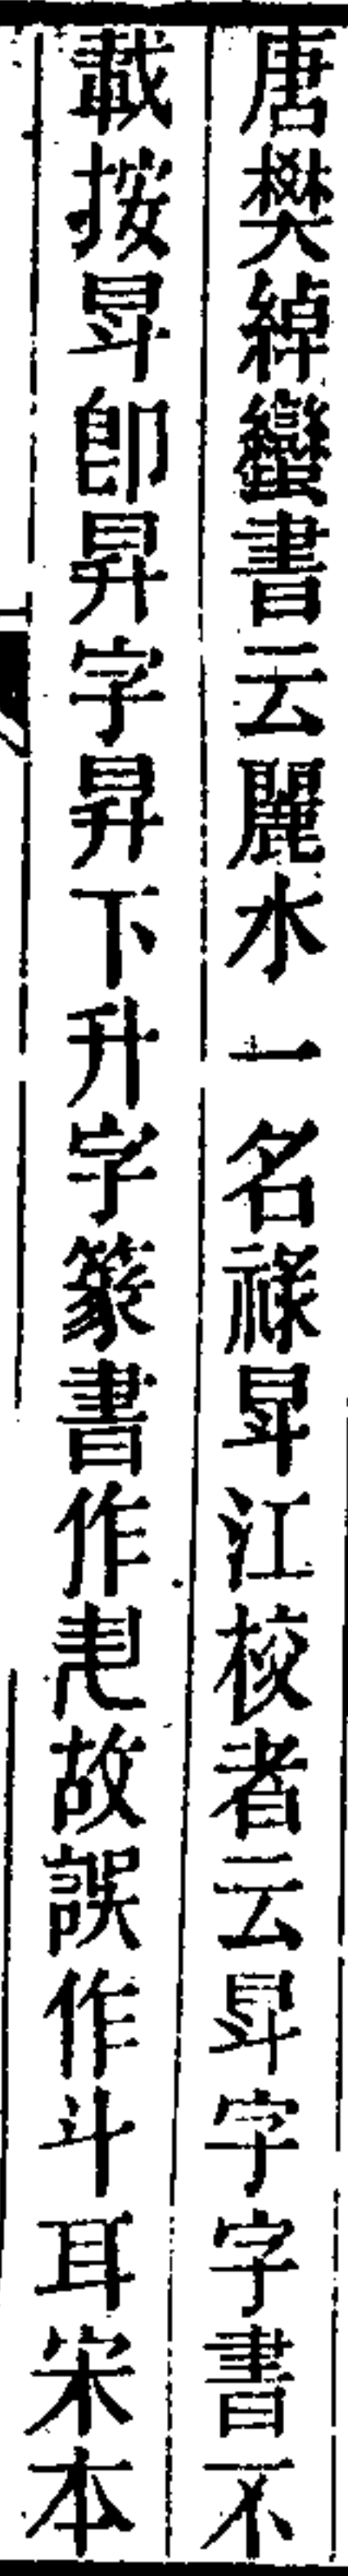 唐樊綽蠻書云麗水一名祿㪷江校者云㪷字字書不
載按㪷卽昇字昇下升字篆書作𠦜故誤作斗耳宋本